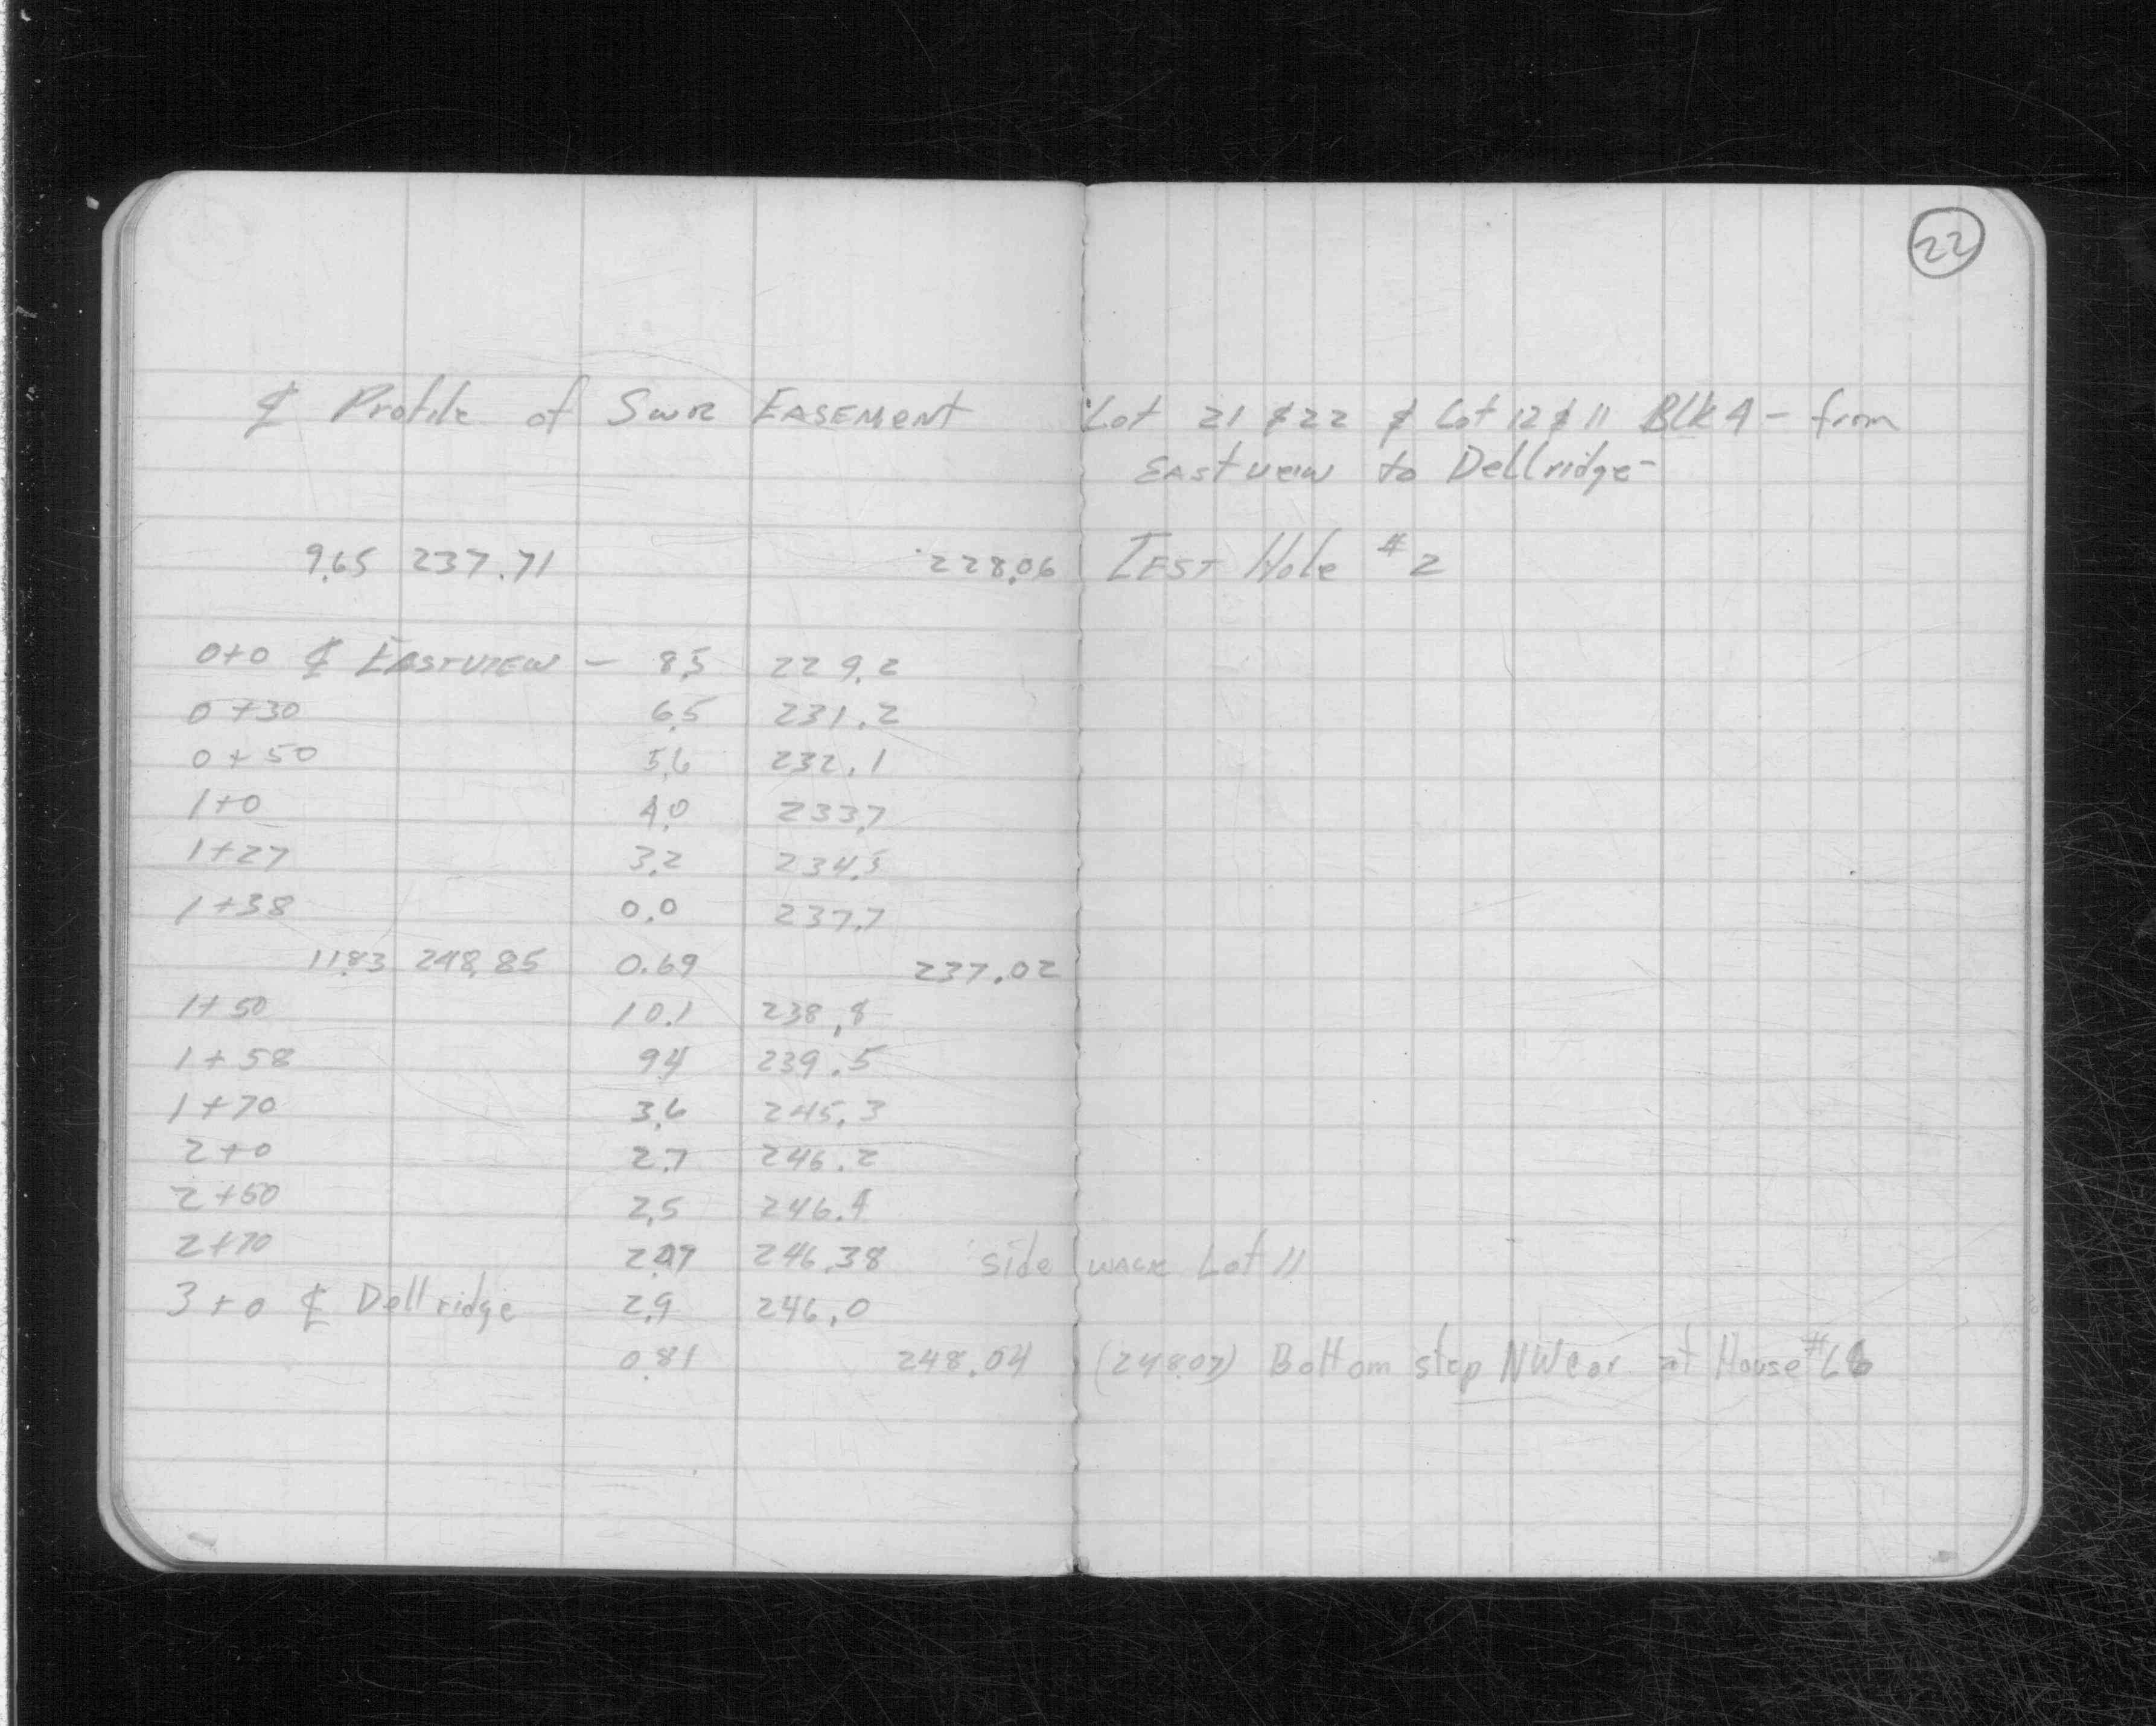 22
℄ Profile of Swr EASEMENT Lot 21 & 22 & Lot 12 & 11 Blk 4 - from
EAStveiw to Dellridge-
9.65 237.71 228.06 TEST Hole #2
0+0 ℄ EASTVIEW - 8.5 229.2
0+30 6.5 231.2
0+50 5.6 232.1
1+0 4.0 233.7
1+27 3.2 234.5
1+38 0.0 237.7
11.83 248.85 0.69 237.02
1+50 10.1 238.8
1+58 9.4 239.5
1+70 3.6 245.3
2+0 2.7 246.2
2+60 2.5 246.4
2+70 2.47 246.38 side walk Lot 11
3+0 ℄ Dellridge 2.9 246.0
0.81 248.04 (248.07) Bottom step NW cor. at House #66